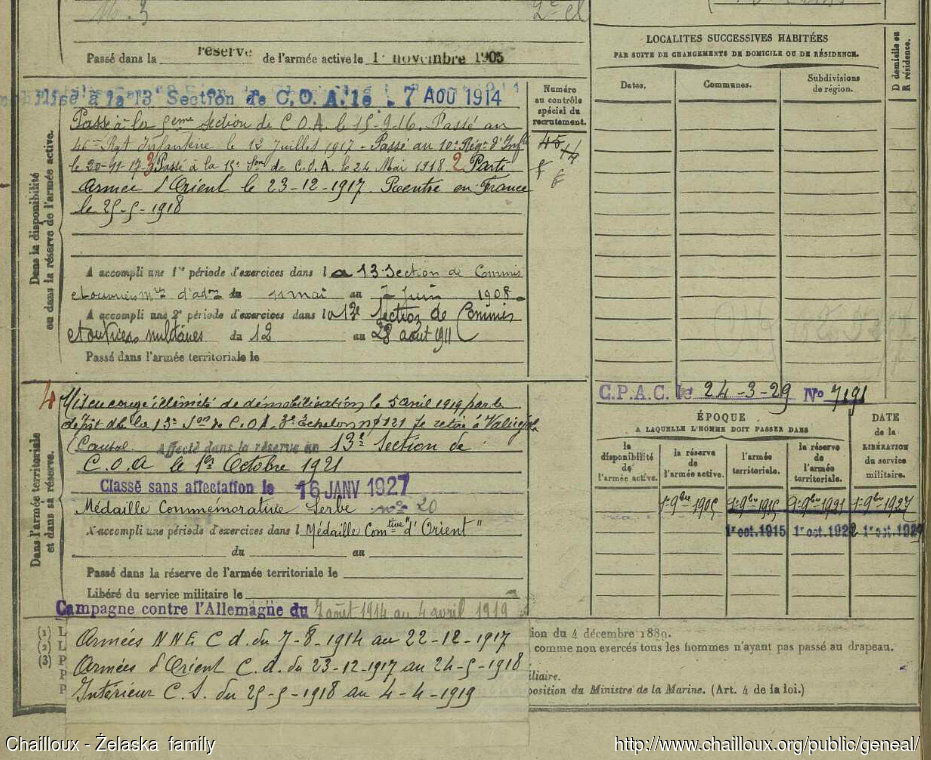 Passé dans la réserve de l'armée active le 1er novembre 1905
13e Section de C.O.A. le 7 AOU 1914
Passé à la 5eme section de C.O.A. le 15-9-16. Passé au
46e Rgt Infanterie le 12 Juillet 1917 - Passé au 10e Rég. d'Inf
le 20-11-17 3 Passé à la 13e Son de C.O.A. le 24 Mai 1918. 2 Parti
Armée d'Orient le 23-12-1917 Rentré en France
le 25-5-1918
Dans la disponibilité
ou dans la réserve de l'armée active.
A accompli une 1re période d'exercices dans la 13 Section de Commis
et ouvriers mres d'adm du 11 mai au 7 Juin 1908.
A accompli une 2e période d'exercices dans la 13e Section de Commis
et ouvriers militaires du 12 au 28 août 1911
Passé dans l'armée territoriale le
Numéro
au contrôle
spécial du
recrutement.
LOCALITES SUCCESSIVES HABITÉES
PAR SUITE DE CHANGEMENTS DE DOMICILE OU DE RÉSIDENCE.
Dates.
Communes.
Subdivisions
de région.
D domicile ou
R résidence.
C.P.A.C. le 24-3-29 No 7191
4 Mis en congé illimité de démobilisation le 5 avril 1919 par le
dépôt de la 13e Son de C.O.A. 3e Echelon no 121 se retire à
(Cantal) Affecté dans la réserve au 13e Section de
C.O.A le 1er Octobre 1921
Classé sans affectation le 16 JANV 1927
Médaille Commémorative Serbe no 20
A accompli une période d'exercices dans l Médaille Comtive d'Orient"
du au
Passé dans la réserve de l'armée territoriale le
Libéré du service militaire le
Dans l'armée territoriale
et dans sa réserve.
Campagne contre l'Allemagne du 7 août 1914 au 4 avril 1919
Armées N.N.E C d. du 7-8-1914 au 22-12-1917
Armées d'Orient C. d. du 23-12-1917 au 24-5-1918
Intérieur C. S. du 25-5-1918 au 4-4-1919
ÉPOQUE
A LAQUELLE L'HOMME DOIT PASSER DANS
la
disponibilité
de
l'armée active.
la réserve
de
l'armée active.
l'armée
territoriale.
la réserve
de
l'armée
territoriale.
DATE
de la
LIBÉRATION
du service
militaire.
1er 9bre 1905 1er 9bre 1915 1er 9bre 1921 1er 9bre 1927
1er oct. 1915 1er oct. 192 1er oct. 192
(1) L
(2) L
(3) P
P
P
ion du 4 décembre 1889.
comme non exercés tous les hommes n'ayant pas passé au drapeau.
iliaire.
position du Ministre de la Marine. (Art. 4 de la loi.)
Chailloux - Żelaska family
http://www.chailloux.org/public/geneal/